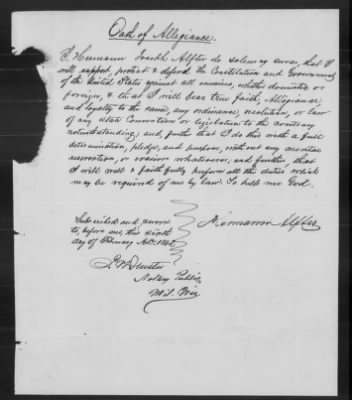 Oath of Allegiance.
I, Hermann Joseph Alfter do solemnly swear, that I
will support, protect & defend the Constitution and Government
of the United States against all enemies, whether domestic or
foreign, & that I will bear true faith, Allegiance
and loyalty to the same, any ordinance, resolution, or law
of any State Convention or legislation to the contrary
notwithstanding; and, further that I do this with a full
determination, pledge, and purpose, without any mental
reservation, or evasion whatsoever, and further, that
I will well & faithfully perform all the duties which
may be required of me by law. So help me God.
Hermann Alfter
Subscribed and sworn
to, before me, this sixth
day of February A.D.
Notary Public